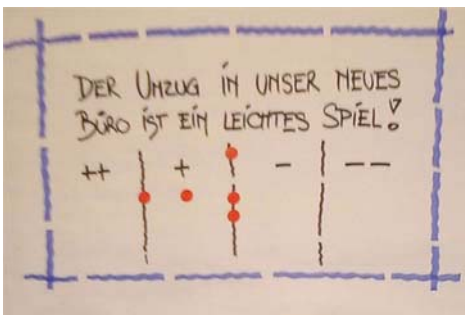 DER UMZUG IN UNSER NEUES
BÜRO IST EIN LEICHTES SPIEL!
++ + - --